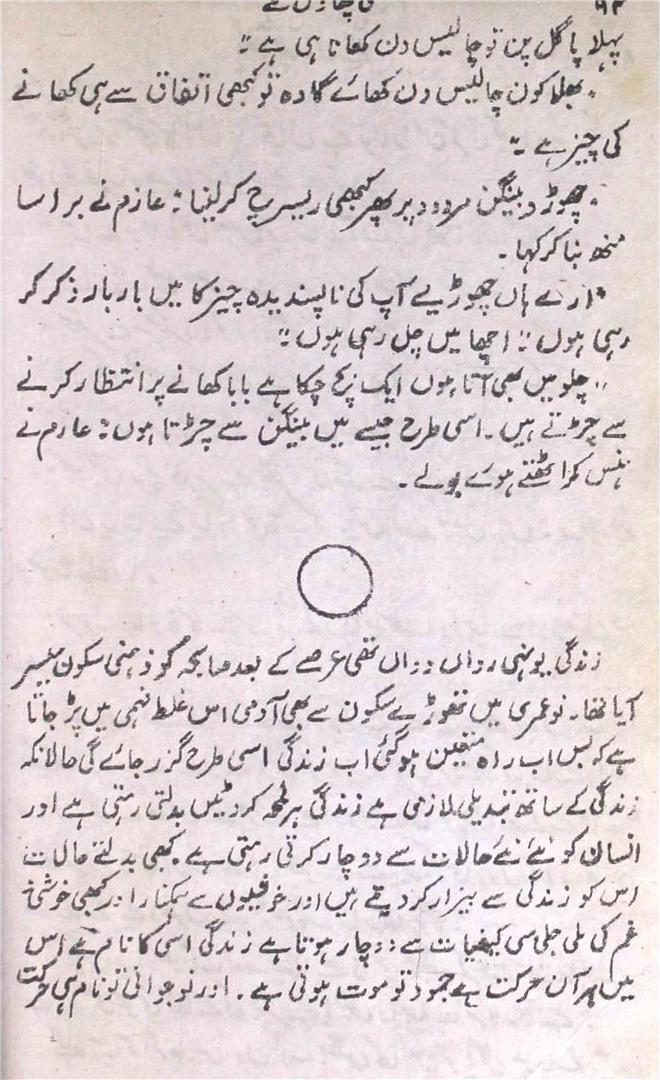 ۹۴
پہلا پاگل پن تو چالیس دن کھانا ہی ہے ؛؛
،، بھلا کون چالیس دن کھائے گا دہ تو کبھی اتفاق سے ہی کھانے
کی چیز ہے ؛؛
،، چھوڑ دبینگن مردود پر پھر کبھی ریسرچ کر لینا ؛؛ عازم نے برا سا
منھ بنا کر کہا۔
،، ارے ہاں چھوڑیے آپ کی ناپسندیدہ چیز کا میں بار بار ذکر کر
رہی ہوں ؛؛ اچھا میں چل رہی ہوں ؛؛
،، چلو میں بھی آتا ہوں ایک بج چکا ہے بابا کھانے پر انتظار کرنے
سے چڑتے ہیں۔ اسی طرح جیسے میں بینگن سے چڑتا ہوں ؛؛ عازم نے
ہنس کر اٹھتے ہوئے بولے۔
زندگی یونہی رواں دواں تھی عرصے کے بعد صابحہ کو ذہنی سکون میسر
آیا تھا۔ نوعمری میں تھوڑے سکون سے بھی آدمی اس غلط فہمی میں پڑ جاتا
ہے کہ بس اب راہ متعین ہو گئی اب زندگی اسی طرح گزر جائے گی حالانکہ
زندگی کے ساتھ تبدیلی لازمی ہے زندگی ہر لمحہ کروٹیں بدلتی رہتی ہے اور
انسان کو نئے نئے حالات سے دوچار کرتی رہتی ہے۔ کبھی بدلتے حالات
اس کو زندگی سے بیزار کر دیتے ہیں اور خوشیوں سے ہمکنار اور کبھی خوشی
غم کی ملی جلی سی کیفیات سے دوچار ہوتا ہے زندگی اسی کا نام ہے اس
میں ہر آن حرکت ہے جمود تو موت ہوتی ہے۔ اور نوجوانی تو نام ہی حرکت